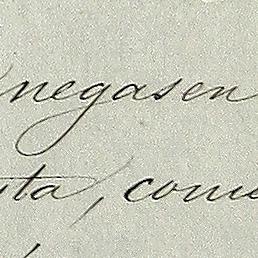 negasen
ta, come